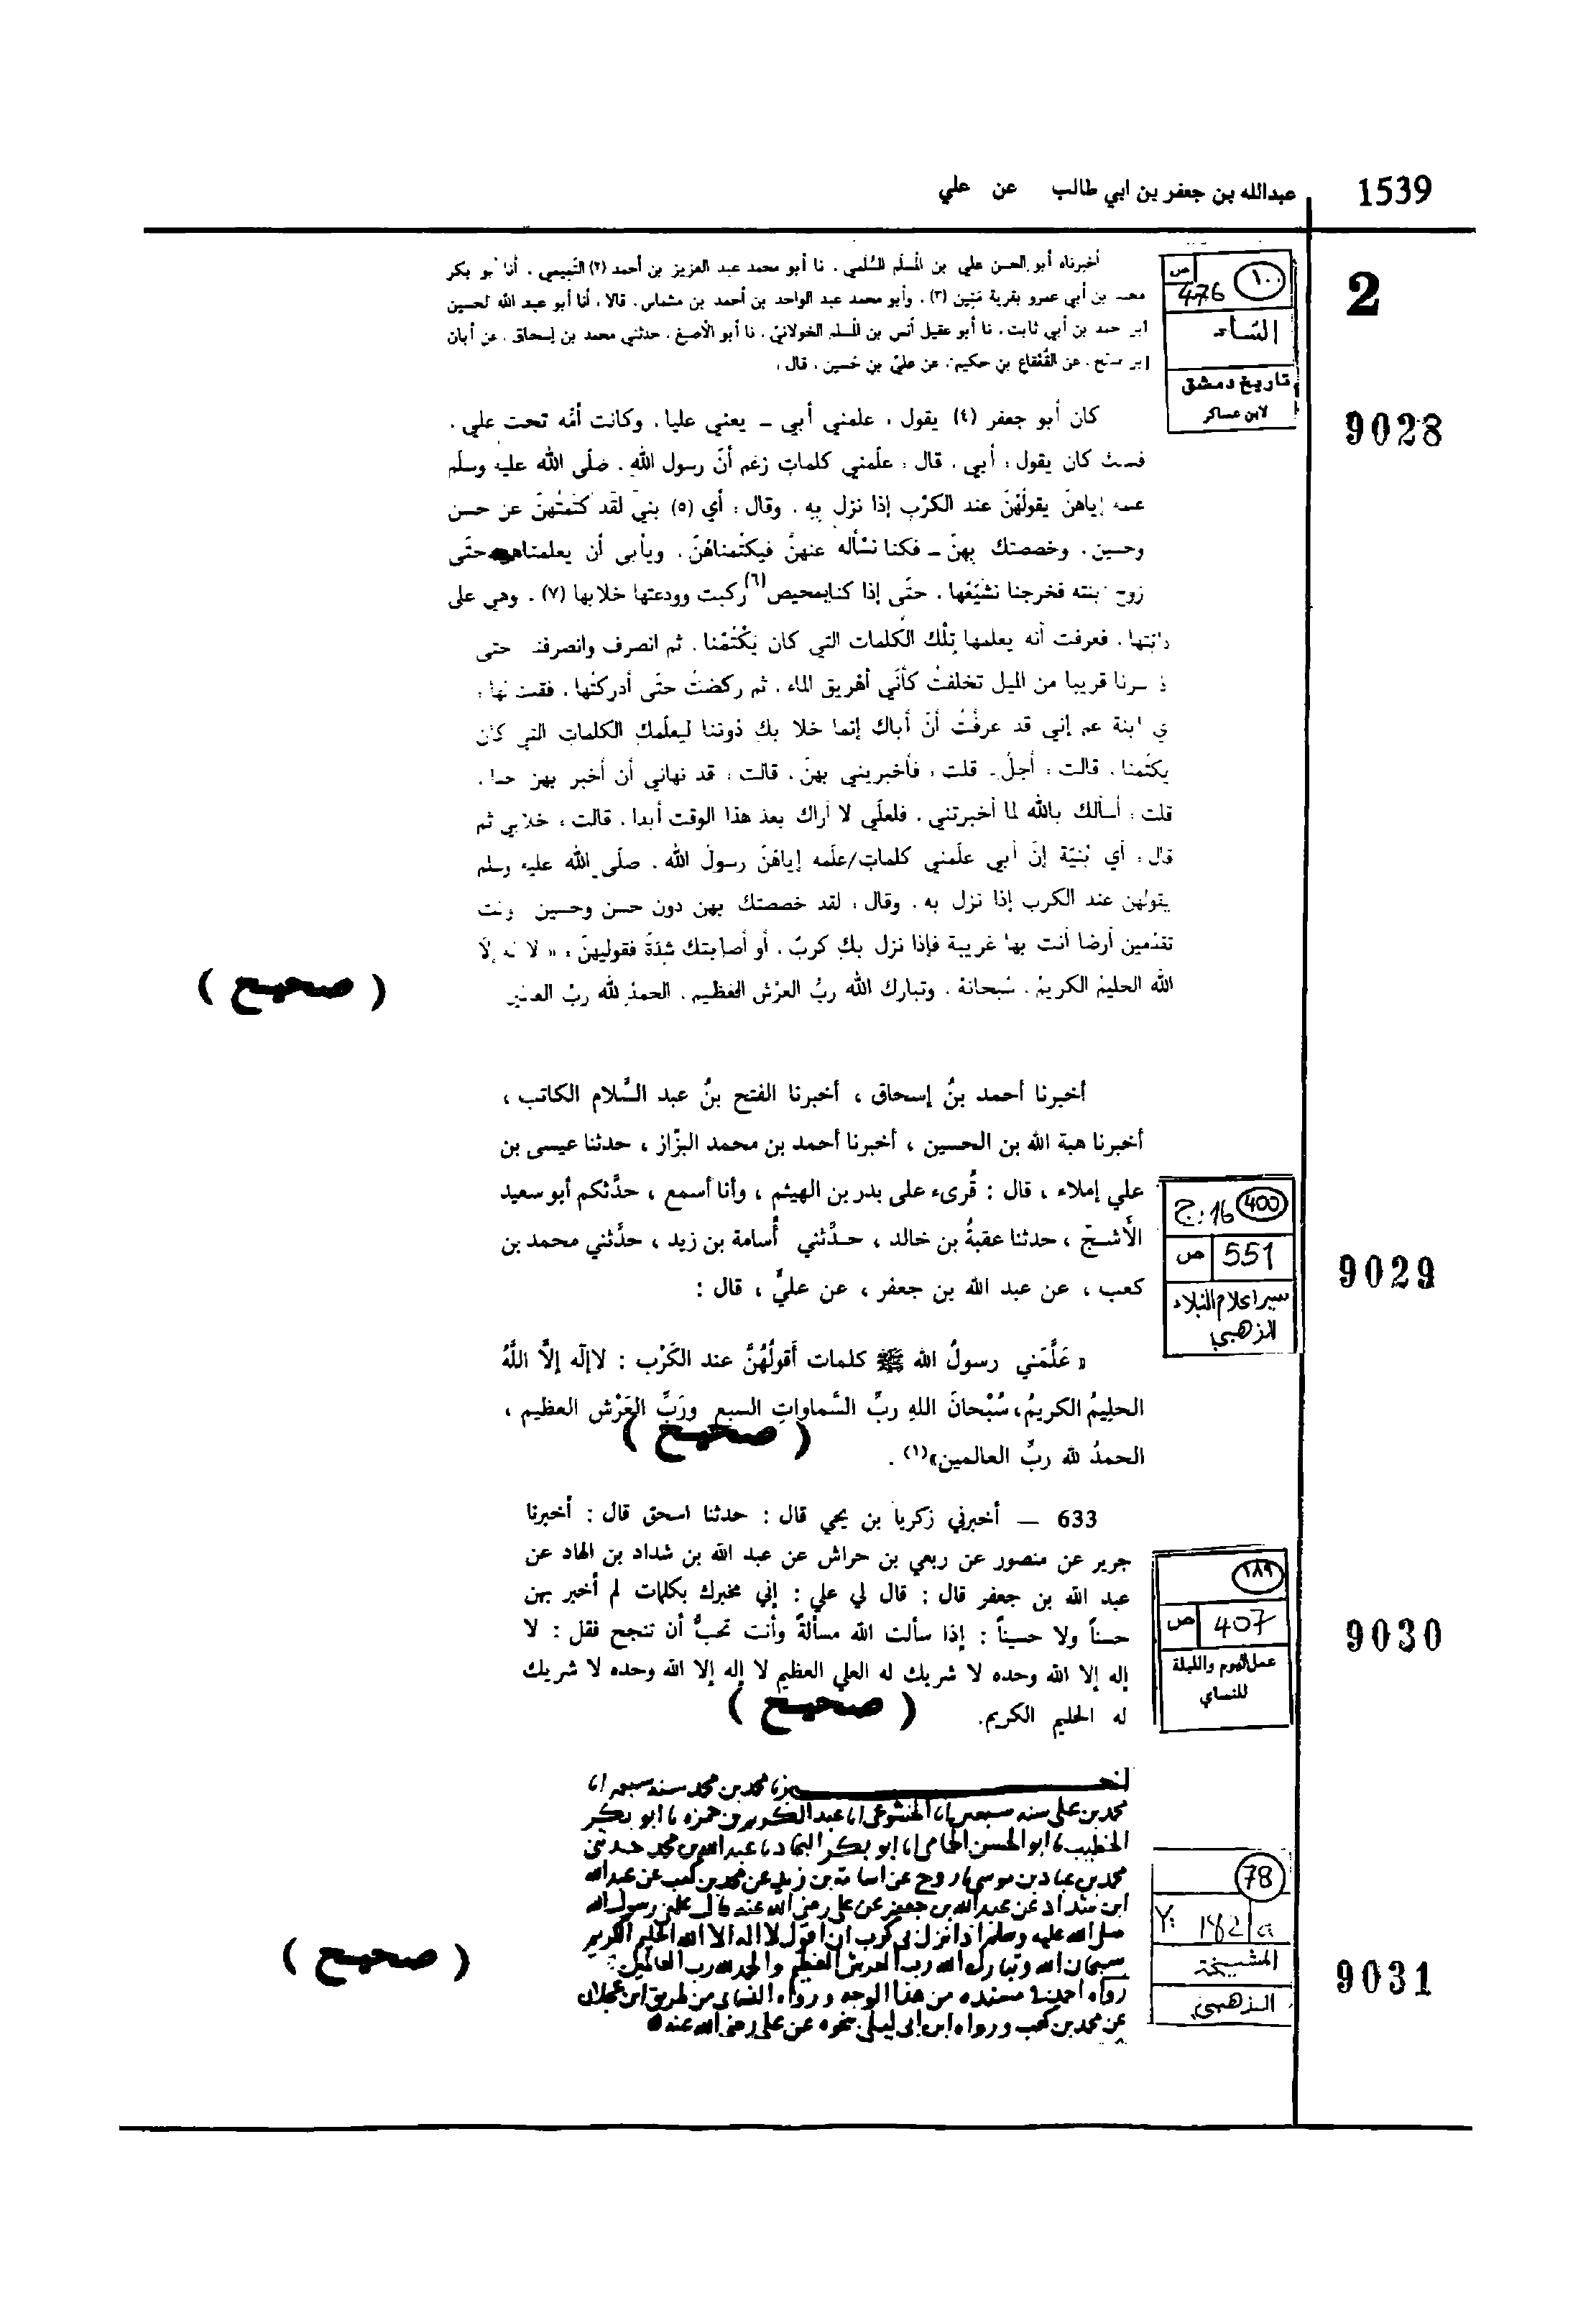 1539
عبدالله بن جعفر بن ابي طالب عن علي
2
١٠٠
ص
476
النساء
تاريخ دمشق
لابن عساكر
9028
أخبرناه أبو الحسن علي بن المسلم السُلمي ، نا أبو محمد عبد العزيز بن أحمد (٢) التميمي ، أنا أبو بكر
محمد بن أبي عمرو بقرية مَنِين (٣) ، وأبو محمد عبد الواحد بن أحمد بن مشماس ، قالا ، أنا أبو عبد الله الحسين
ابن حمد بن أبي ثابت ، نا أبو عقيل أنس بن المسلم الخولاني ، نا أبو الأصبغ ، حدثني محمد بن إسحاق ، عن أبان
ابن صالح ، عن القَعْقاع بن حكيم ، عن عليّ بن حُسين ، قال ،
كان أبو جعفر (٤) يقول ، علمني أبي ــ يعني عليا ، وكانت أمّه تحت علي ،
كان يقول ، أبي ، قال ، علّمني كلمات زعم أنّ رسول الله ، صَلّى الله عليه وسلّم
إياهنّ يقولُهُنّ عند الكرْب إذا نزل به ، وقال ، أي (٥) بنيّ لقد كتمتُهنّ عن حسن
وحسين ، وخصصتك بهنّ ــ فكنا نسأله عنهنَّ فيكتمناهُنّ ، ويأبى أن يعلمناهن حتّى
زوج ابنته فخرجنا نشيّعُها ، حتّى إذا كنا بمحيص (٦) ركبت وودعتها خلابها (٧) ، وهي على
دابتها ، فعرفت أنه يعلمها تلْك الكلمات التي كان يَكْتُمُنا ، ثم انصرف وانصرفنا حتى
سرنا قريبا من الميل تخلفتُ كأنّي أهْريق الماء ، ثم ركضتُ حتّى أدركتُها ، فقلت لها ،
ابنة عم إني قد عرفْتُ أنّ أباك إنّما خلا بك دوننا ليعلّمك الكلمات التي كان
يكتمنا ، قالت ، أجلْ ، قلت ، فأخبريني بهنّ ، قالت ، قد نهاني أن أخبر بهن ،
قلت ، أسألك بالله لما أخبرتني ، فلعلّي لا أراك بعد هذا الوقت أبدا ، قالت ، خلا بي ثم
قال ، أي بُنيّة إنّ أبي علّمني كلمات/علّمه إياهُنّ رسولُ الله ، صلّى الله عليه وسلم
يقولهن عند الكرب إذا نزل به ، وقال ، لقد خصصتك بهن دون حسن وحسين وأنت
تقدمين أرضا أنت بها غريبة فإذا نزل بك كربٌ ، أو أصابتك شدّةٌ فقوليهنّ ، « لا إله إلّا
الله الحليمُ الكريمُ ، سُبحانهُ ، وتبارك الله ربُّ العرْش العَظيم ، الحمدُ لله ربّ العالمين
( صحيح )
400
ج. 16
ص 551
سير اعلام النبلاء
الذهبي
9029
أخبرنا أحمد بنُ إسحاق ، أخبرنا الفتح بنُ عبد السَّلام الكاتب ،
أخبرنا هبة الله بن الحسين ، أخبرنا أحمد بن محمد البزّاز ، حدثنا عيسى بن
علي إملاء ، قال : قُرىء على بدر بن الهيثم ، وأنا أسمع ، حدَّثكم أبو سعيد
الأَشجّ ، حدثنا عقبةُ بن خالد ، حدَّثني أُسامة بن زيد ، حدَّثني محمد بن
كعب ، عن عبد الله بن جعفر ، عن عليٍّ ، قال :
« عَلَّمَني رسولُ الله ﷺ كلمات أَقولُهُنَّ عند الكَرْب : لاإلٰه إلاَّ اللَّهُ
الحلِيمُ الكريمُ، سُبْحانَ اللهِ ربِّ السَّماواتِ السبع ورَبِّ العَرْش العظيم ،
الحمدُ لله ربِّ العالمين»(١) .
( صحيح )
١٨٩
ص 407
عمل اليوم والليلة
للنساي
9030
633 — أخبرني زكريا بن يحي قال : حدثنا اسحق قال : أخبرنا
جرير عن منصور عن ربعي بن حراش عن عبد الله بن شداد بن الهاد عن
عبد الله بن جعفر قال : قال لي علي : إني مخبرك بكلمات لم أخبر بهن
حسناً ولا حسيناً : إذا سألت الله مسألةً وأنت تحبُّ أن تنجح فقل : لا
إله إلا الله وحده لا شريك له العلي العظيم لا إله إلا الله وحده لا شريك
له الحليم الكريم.
( صحيح )
78
182/a
المشيخة
الذهبي
9031
محمد بن محمد سنة
محمد بن علي سنه انا الخشوعي انا عبد الكريم بن حمزه نا ابو بكر
الخطيب نا ابو الحسن الحمامي انا ابو بكر النجاد نا عبد الله بن محمد حدثني
محمد بن عباد بن موسى نا روح عن اسامة بن زيد عن محمد بن كعب عن عبد الله
ابن شداد عن عبد الله بن جعفر عن علي رضي الله عنه قال علمني رسول الله
صلى الله عليه وسلم اذا نزل بي كرب ان اقول لا اله الا الله الحليم الكريم
سبحان الله وتبارك الله رب العرش العظيم والحمد لله رب العالمين
رواه احمد في مسنده من هذا الوجه ورواه النسائي من طريق ابن عجلان
عن محمد بن كعب ورواه ابن ابي ليلى نحوه عن علي رضي الله عنه
( صحيح )